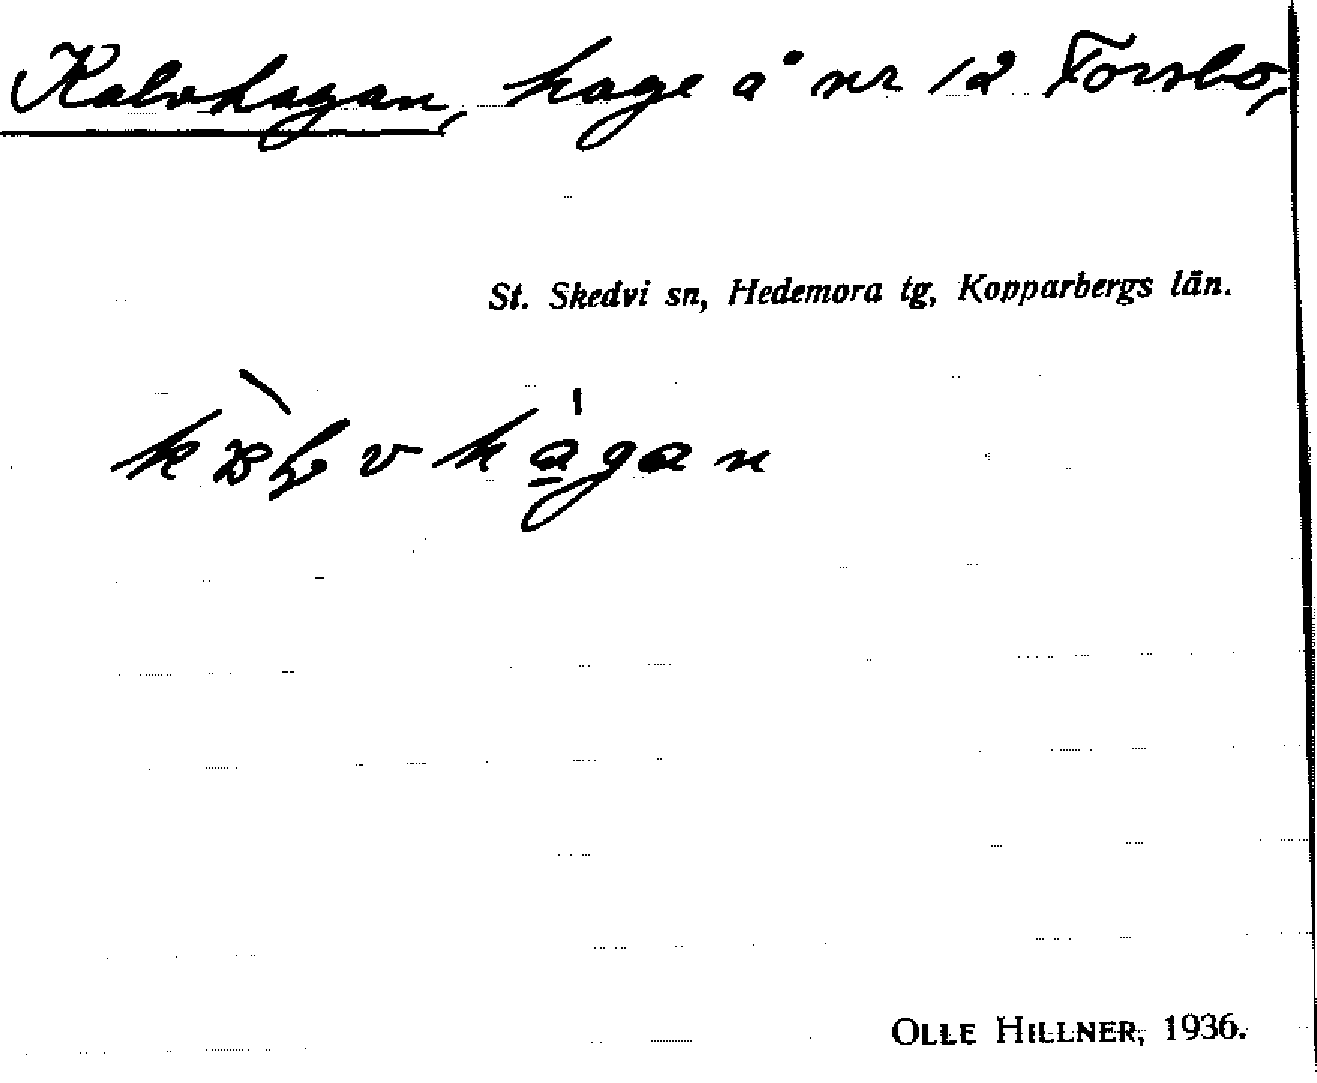 Kalvhagan, hage å nr 12 Forsbo,
St. Skedvi sn, Hedemora tg, Kopparbergs län.
OLLE HILLNER, 1936.